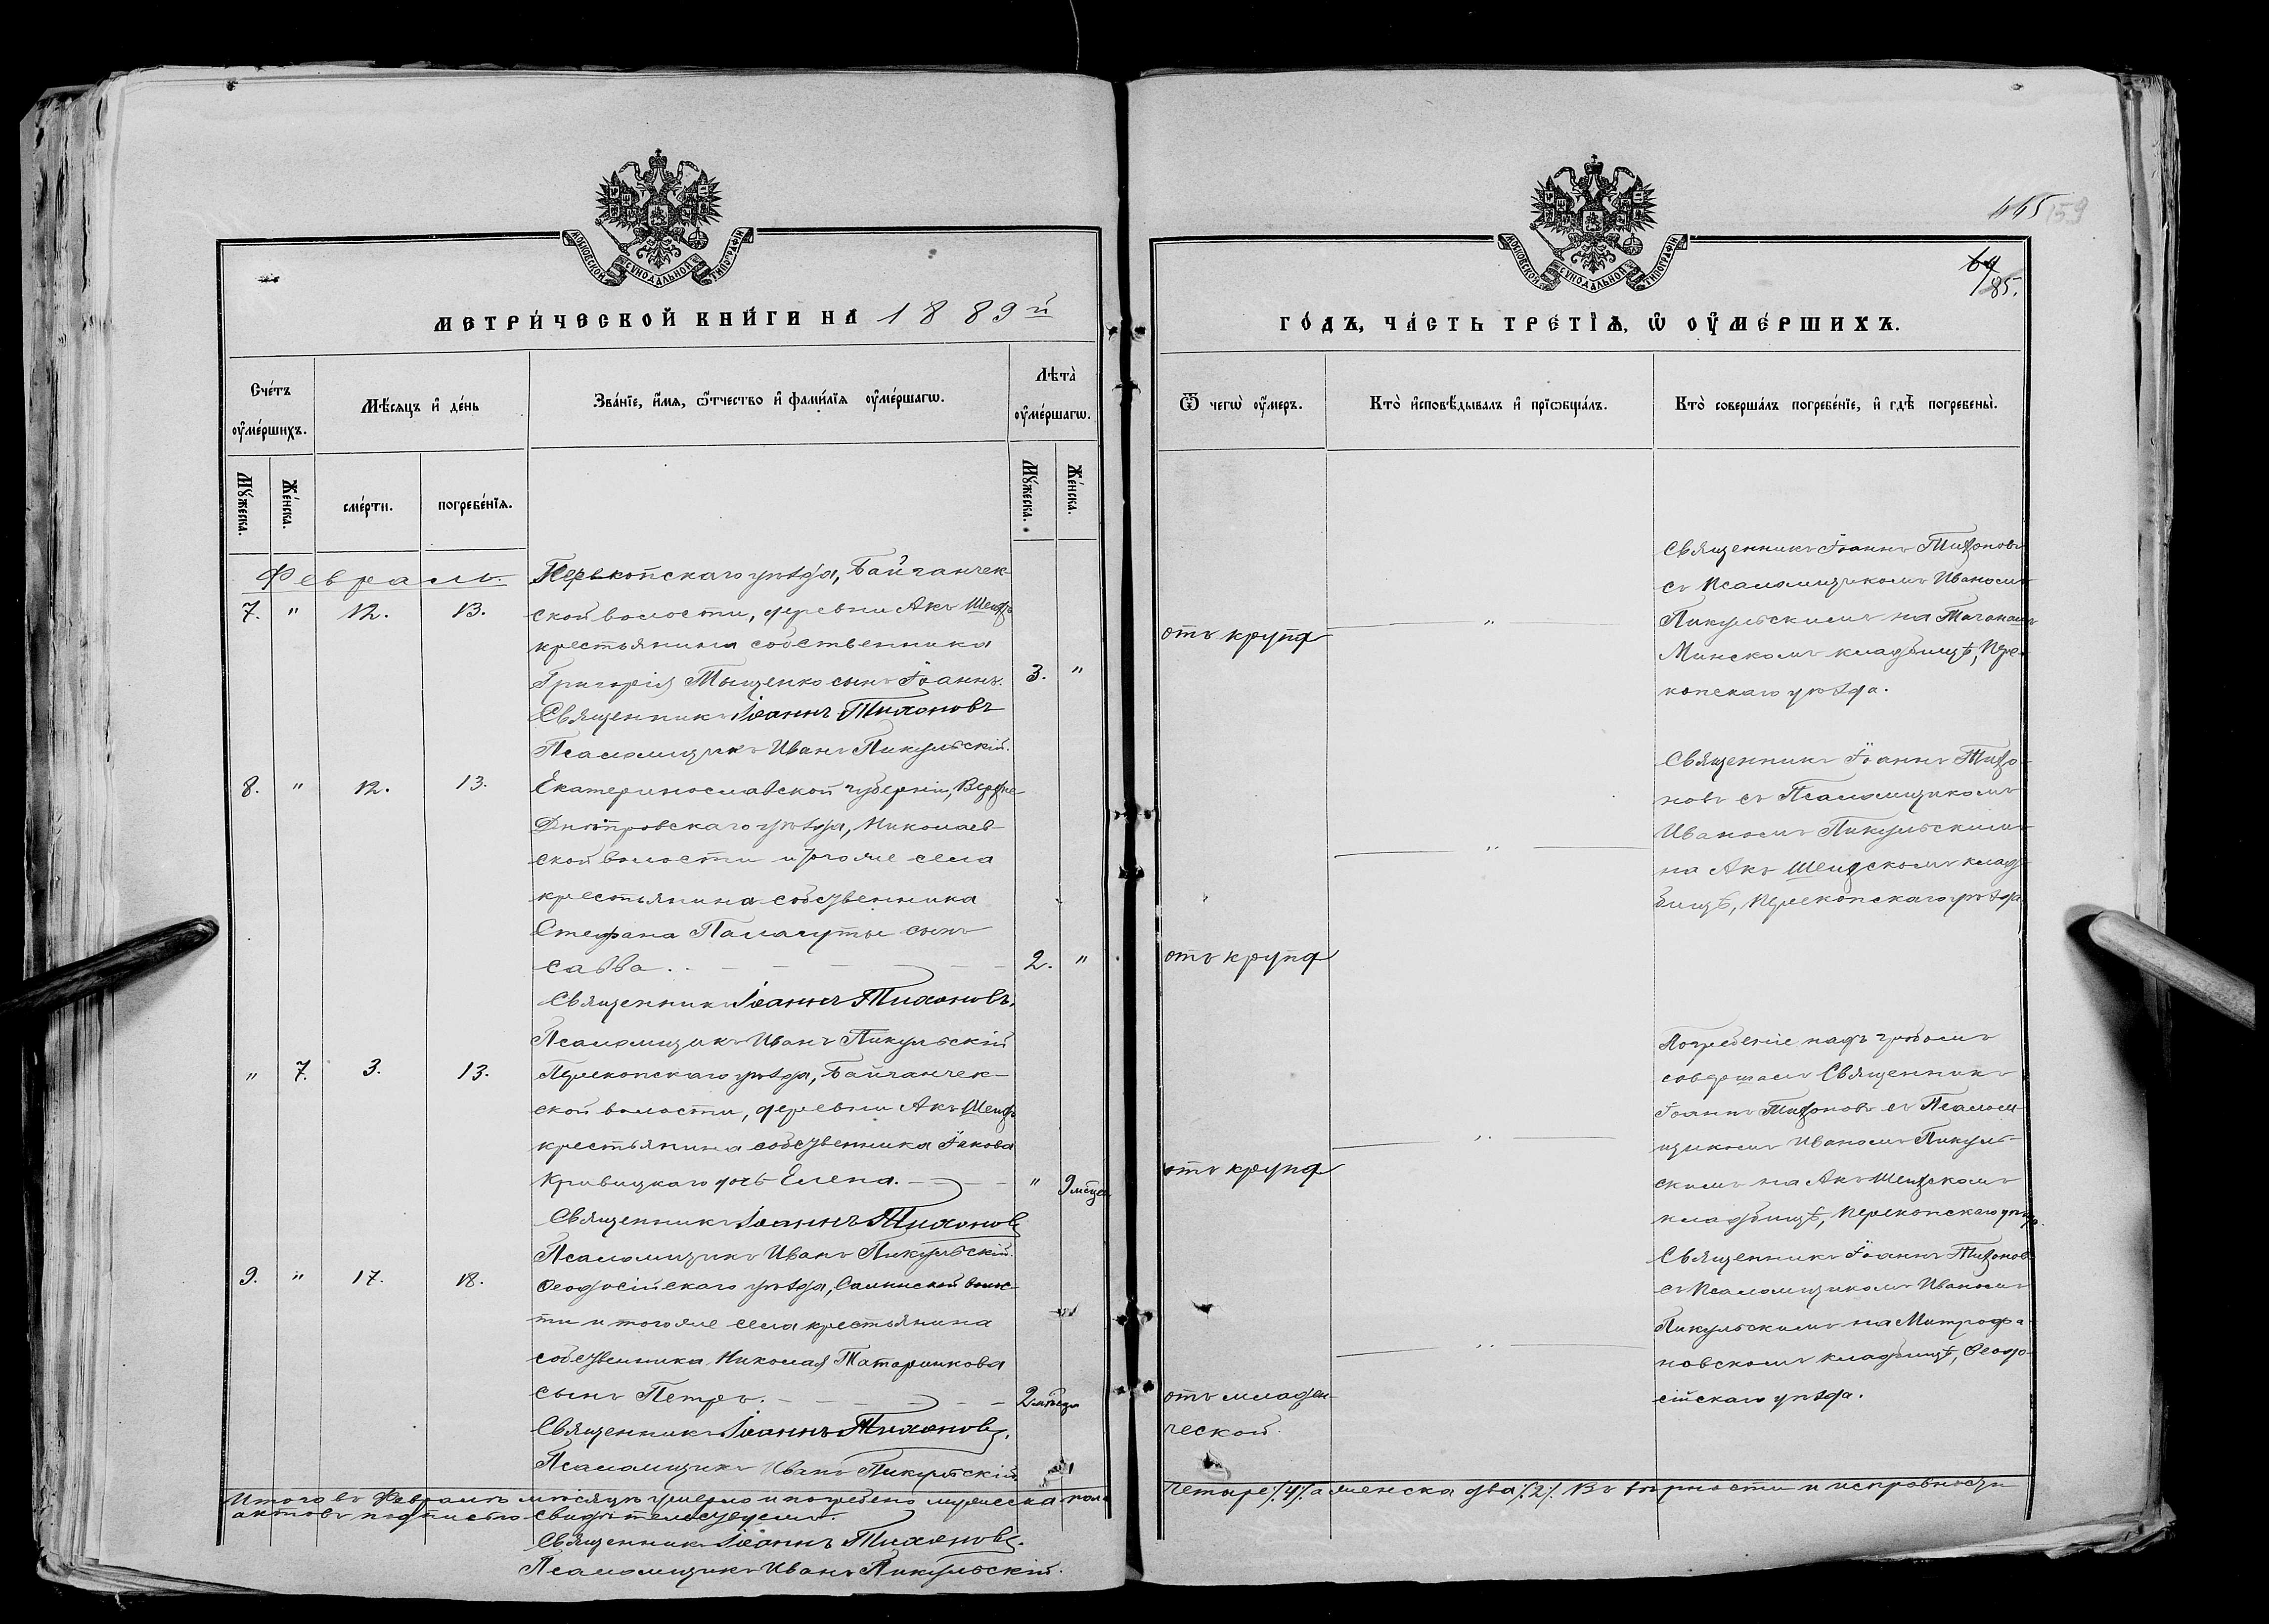 МОСКОВСКОЙ СѴНОДАЛЬНОЙ ТИПОГРАФІИ
МЕТРИ́ЧЕСКОЙ КНИ́ГИ НА 1889й
Сче́тъ ᲂу҆ме́ршихъ.
Мѣ́сяцъ и҆ де́нь
Зва́нїе, и҆́мѧ, ѻ҆́тчество и҆ фами́лїѧ ᲂу҆ме́ршагѡ.
Лѣта̀ ᲂу҆ме́ршагѡ.
Мꙋ́жеска.
Же́нска.
сме́рти.
погребе́нїѧ.
Мꙋ́жеска.
Же́нска.
Февраль.
Перекопскаго уѣзда, Байганчек-
7. " 12. 13. ской волости, деревни Акъ Шеихъ
крестьянина собственника
Григорія Тыщенко сынъ Іоаннъ. 3. "
Священникъ Іоаннъ Тихоновъ
Псаломщикъ Иванъ Пикульскій.
8. " 12. 13. Екатеринославской губерніи, Верхне-
Днѣпровскаго уѣзда, Николаев-
ской волости и того же села
крестьянина собственника
Стефана Паламуты сынъ
Савва. 2. "
Священникъ Іоаннъ Тихоновъ.
Псаломщикъ Иванъ Пикульскій
" 7. 3. 13. Перекопскаго уѣзда, Байганчек-
ской волости, деревни Акъ Шеихъ
крестьянина собственника Іакова
Кривицкаго дочь Елена. " 9 мѣсяц
Священникъ Іоаннъ Тихоновъ
Псаломщикъ Иванъ Пикульскій.
9. " 17. 18. Ѳеодосійскаго уѣзда, волос-
ти и того же села крестьянина
собственника Николая Татаринкова
сынъ Петръ. 2 мѣсяца
Священникъ Іоаннъ Тихоновъ.
Псаломщикъ Иванъ Пикульскій.
Итого въ Февралѣ мѣсяцѣ умерло и погребено мужеска пола
актовъ подписью свидѣтельствуемъ.
Священникъ Іоаннъ Тихоновъ.
Псаломщикъ Иванъ Пикульскій.
159
64
185.
МОСКОВСКОЙ СѴНОДАЛЬНОЙ ТИПОГРАФІИ
ГО́ДЪ, ЧА́СТЬ ТРЕ́ТЇѦ, Ѡ҆ ᲂУ҆МЕ́РШИХЪ.
Ѿ чегѡ̀ ᲂу҆́меръ.
Кто̀ и҆сповѣ́дывалъ и҆ прїѡбща́лъ.
Кто̀ соверша́лъ погребе́нїе, и҆ гдѣ̀ погребены̀.
Священникъ Іоаннъ Тихоновъ
съ Псаломщикомъ Иваномъ
отъ крупа " Пикульскимъ на
Минскомъ кладбищѣ, Пере-
копскаго уѣзда.
Священникъ Іоаннъ Тихо-
новъ съ Псаломщикомъ
Иваномъ Пикульскимъ
" на Акъ Шеихскомъ клад-
бищѣ, Перекопскаго уѣзда
отъ крупа
Погребеніе надъ гробомъ
совершалъ Священникъ
Іоаннъ Тихоновъ съ Псалом-
" щикомъ Иваномъ Пикуль-
отъ крупа скимъ на Акъ Шеихскомъ
кладбищѣ, Перекопскаго уѣзда
Священникъ Іоаннъ Тихоновъ
съ Псаломщикомъ Иваномъ
Пикульскимъ на Митрофа-
" новскомъ кладбищѣ, Ѳеодо-
отъ младен- сійскаго уѣзда.
ческой.
четыре /4/ а женска два /2/. Въ вѣрности и исправности